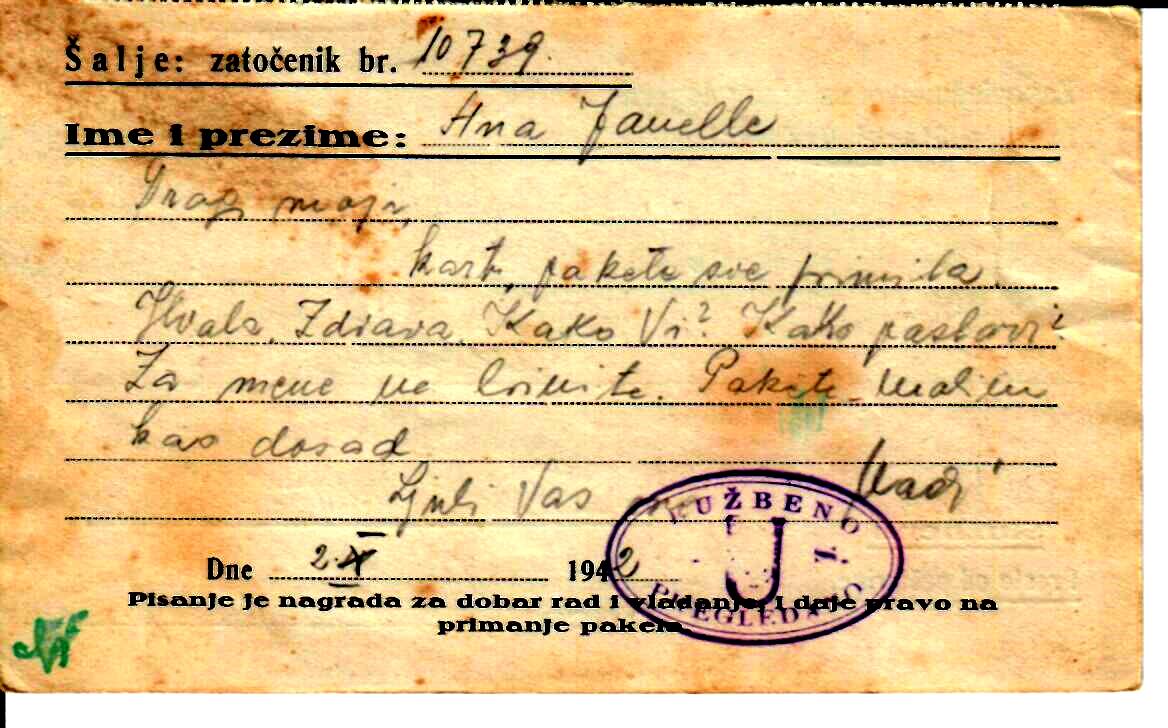 Šalje: zatočenik br. 10739.
Ime i prezime: Ana
Dragi moji,
karte, pakete sve primila.
Hvala. Zdrava. Kako Vi? Kako poslovi?
Za mene ne brinite. Pakete molim
kao dosad
Ljubi Vas
Dne 2. X 1942
SLUŽBENO
U
PREGLEDANO
Pisanje je nagrada za dobar rad i vladanje, i daje pravo na
primanje paketa.